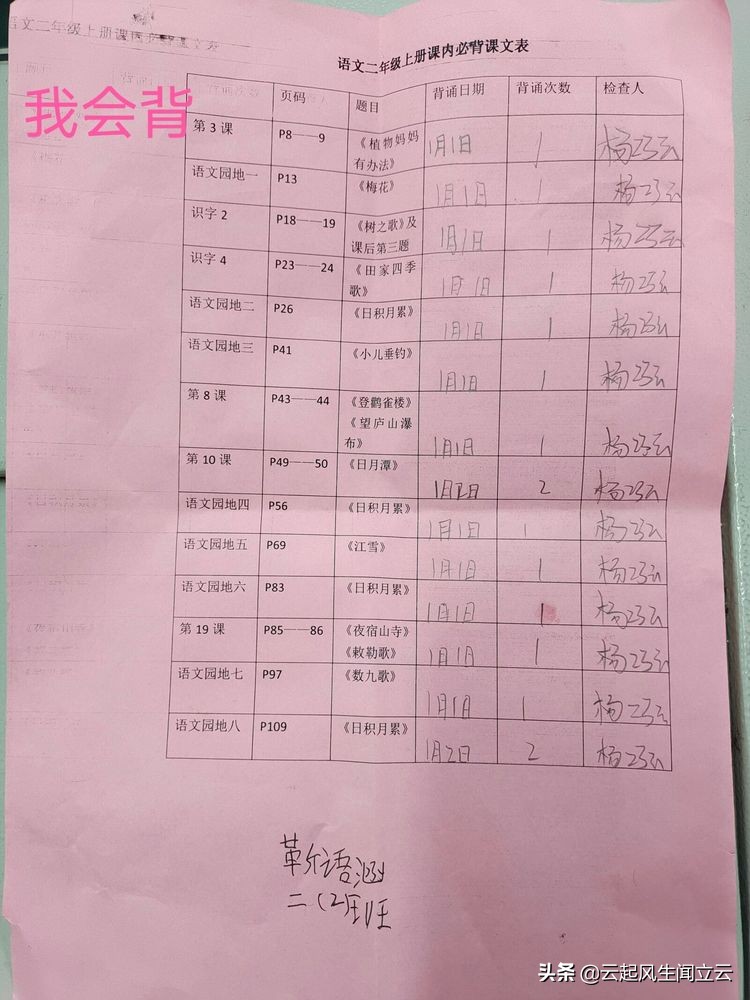 语文二年级上册课内必背课文表
我会背
页码 题目 背诵日期 背诵次数 检查人
第3课 P8——9 《植物妈妈 1月1日 1 杨巧云
有办法》
语文园地一 P13 《梅花》 1月1日 1 杨巧云
识字2 P18——19 《树之歌》及 1月1日 1 杨巧云
课后第三题
识字4 P23——24 《田家四季 1月1日 1 杨巧云
歌》
语文园地二 P26 《日积月累》 1月1日 1 杨巧云
语文园地三 P41 《小儿垂钓》 1月1日 1 杨巧云
第8课 P43——44 《登鹳雀楼》 1月1日 1 杨巧云
《望庐山瀑
布》
第10课 P49——50 《日月潭》 1月2日 2 杨巧云
语文园地四 P56 《日积月累》 1月1日 1 杨巧云
语文园地五 P69 《江雪》 1月1日 1 杨巧云
语文园地六 P83 《日积月累》 1月1日 1 杨巧云
第19课 P85——86 《夜宿山寺》 1月1日 1 杨巧云
《敕勒歌》
语文园地七 P97 《数九歌》 1月1日 1 杨巧云
语文园地八 P109 《日积月累》 1月2日 2 杨巧云
语涵
二(2)班
头条 @云起风生闻立云